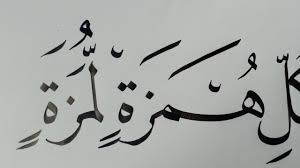 كلِّ هُمَزَةٍ لُمَزَةٍ